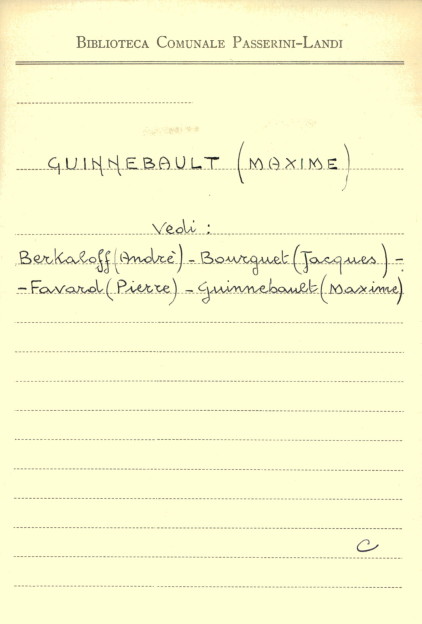 BIBLIOTECA COMUNALE PASSERINI-LANDI
GUINNEBAULT (MAXIME)
Vedi :
Berkaloff (Andrè) - Bourguet (Jacques) -
- Favard (Pierre) - Guinnebault (Maxime)
C